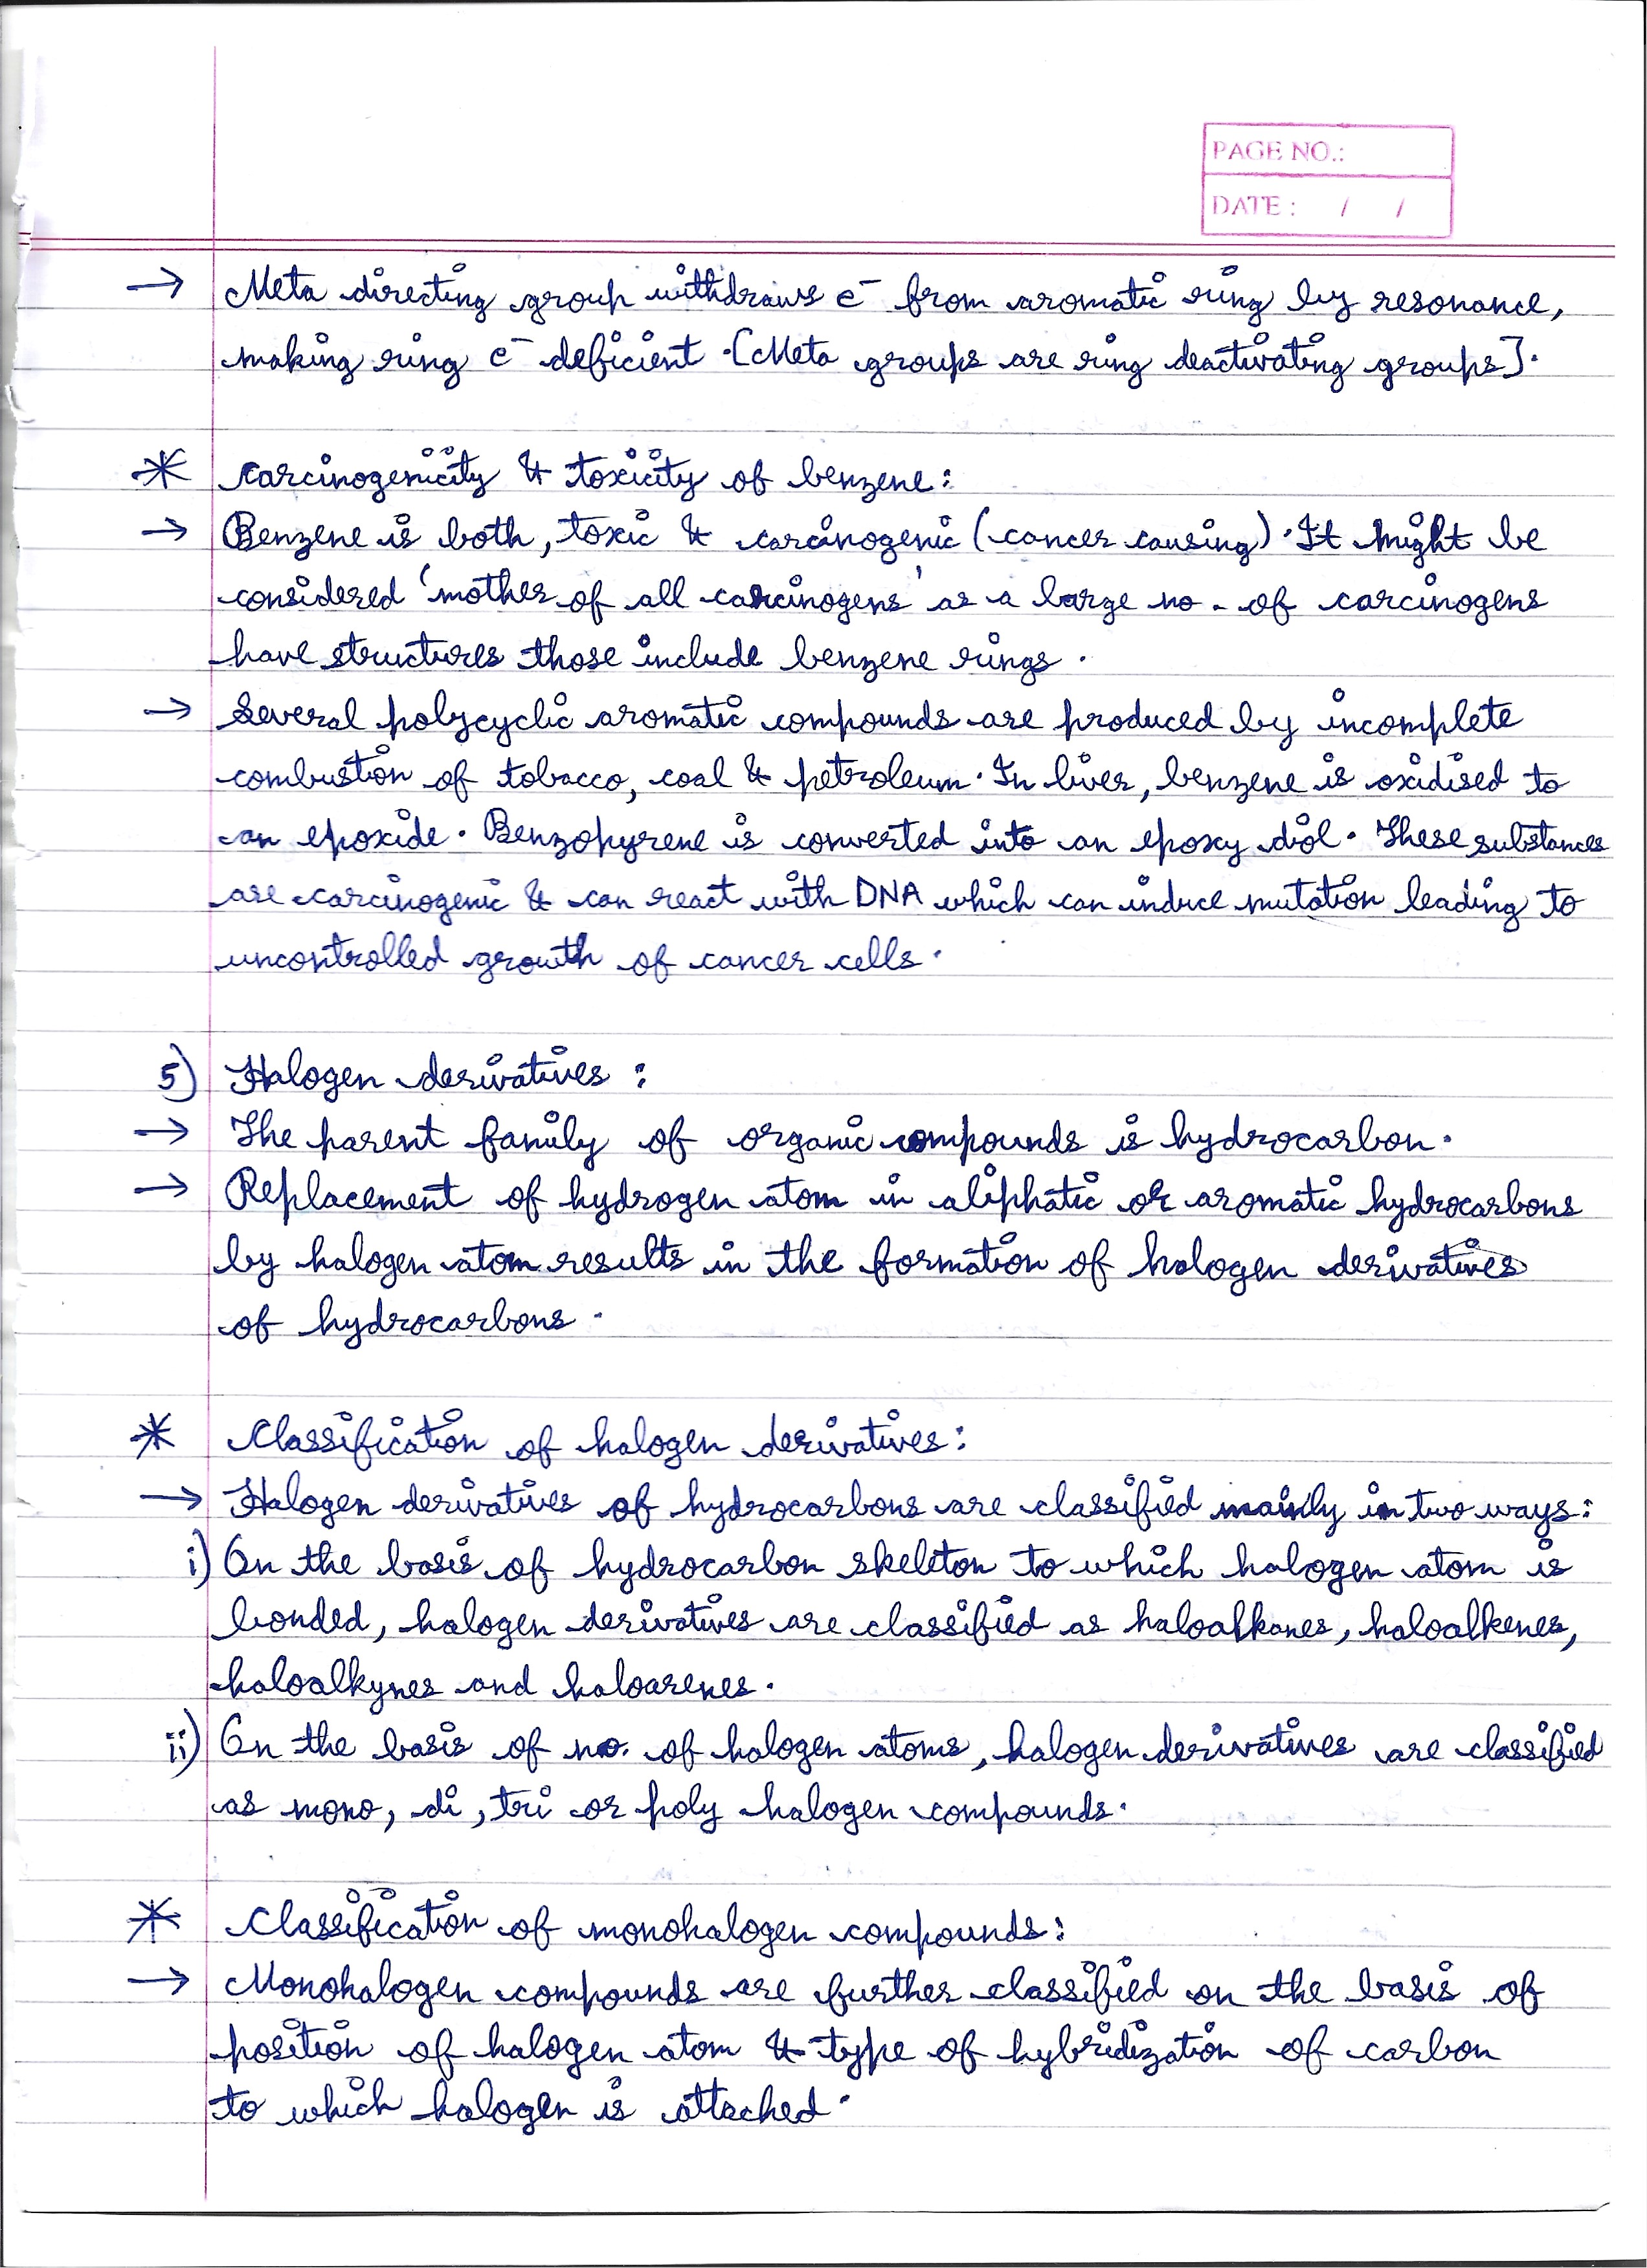 PAGE NO.:
DATE : / /
→ Meta directing group withdraws e⁻ from aromatic ring by resonance,
making ring e⁻ deficient. [Meta groups are ring deactivating groups].
* Carcinogenicity & toxicity of benzene:
→ Benzene is both, toxic & carcinogenic (cancer causing). It might be
considered 'mother of all carcinogens' as a large no. of carcinogens
have structures those include benzene rings.
→ Several polycyclic aromatic compounds are produced by incomplete
combustion of tobacco, coal & petroleum. In liver, benzene is oxidised to
an epoxide. Benzopyrene is converted into an epoxy diol. These substances
are carcinogenic & can react with DNA which can induce mutation leading to
uncontrolled growth of cancer cells.
5) Halogen derivatives :
→ The parent family of organic compounds is hydrocarbon.
→ Replacement of hydrogen atom in aliphatic or aromatic hydrocarbons
by halogen atom results in the formation of halogen derivatives
of hydrocarbons.
* Classification of halogen derivatives:
→ Halogen derivatives of hydrocarbons are classified mainly in two ways:
i) On the basis of hydrocarbon skeleton to which halogen atom is
bonded, halogen derivatives are classified as haloalkanes, haloalkenes,
haloalkynes and haloarenes.
ii) On the basis of no. of halogen atoms, halogen derivatives are classified
as mono, di, tri or poly halogen compounds.
* Classification of monohalogen compounds:
→ Monohalogen compounds are further classified on the basis of
position of halogen atom & type of hybridization of carbon
to which halogen is attached.